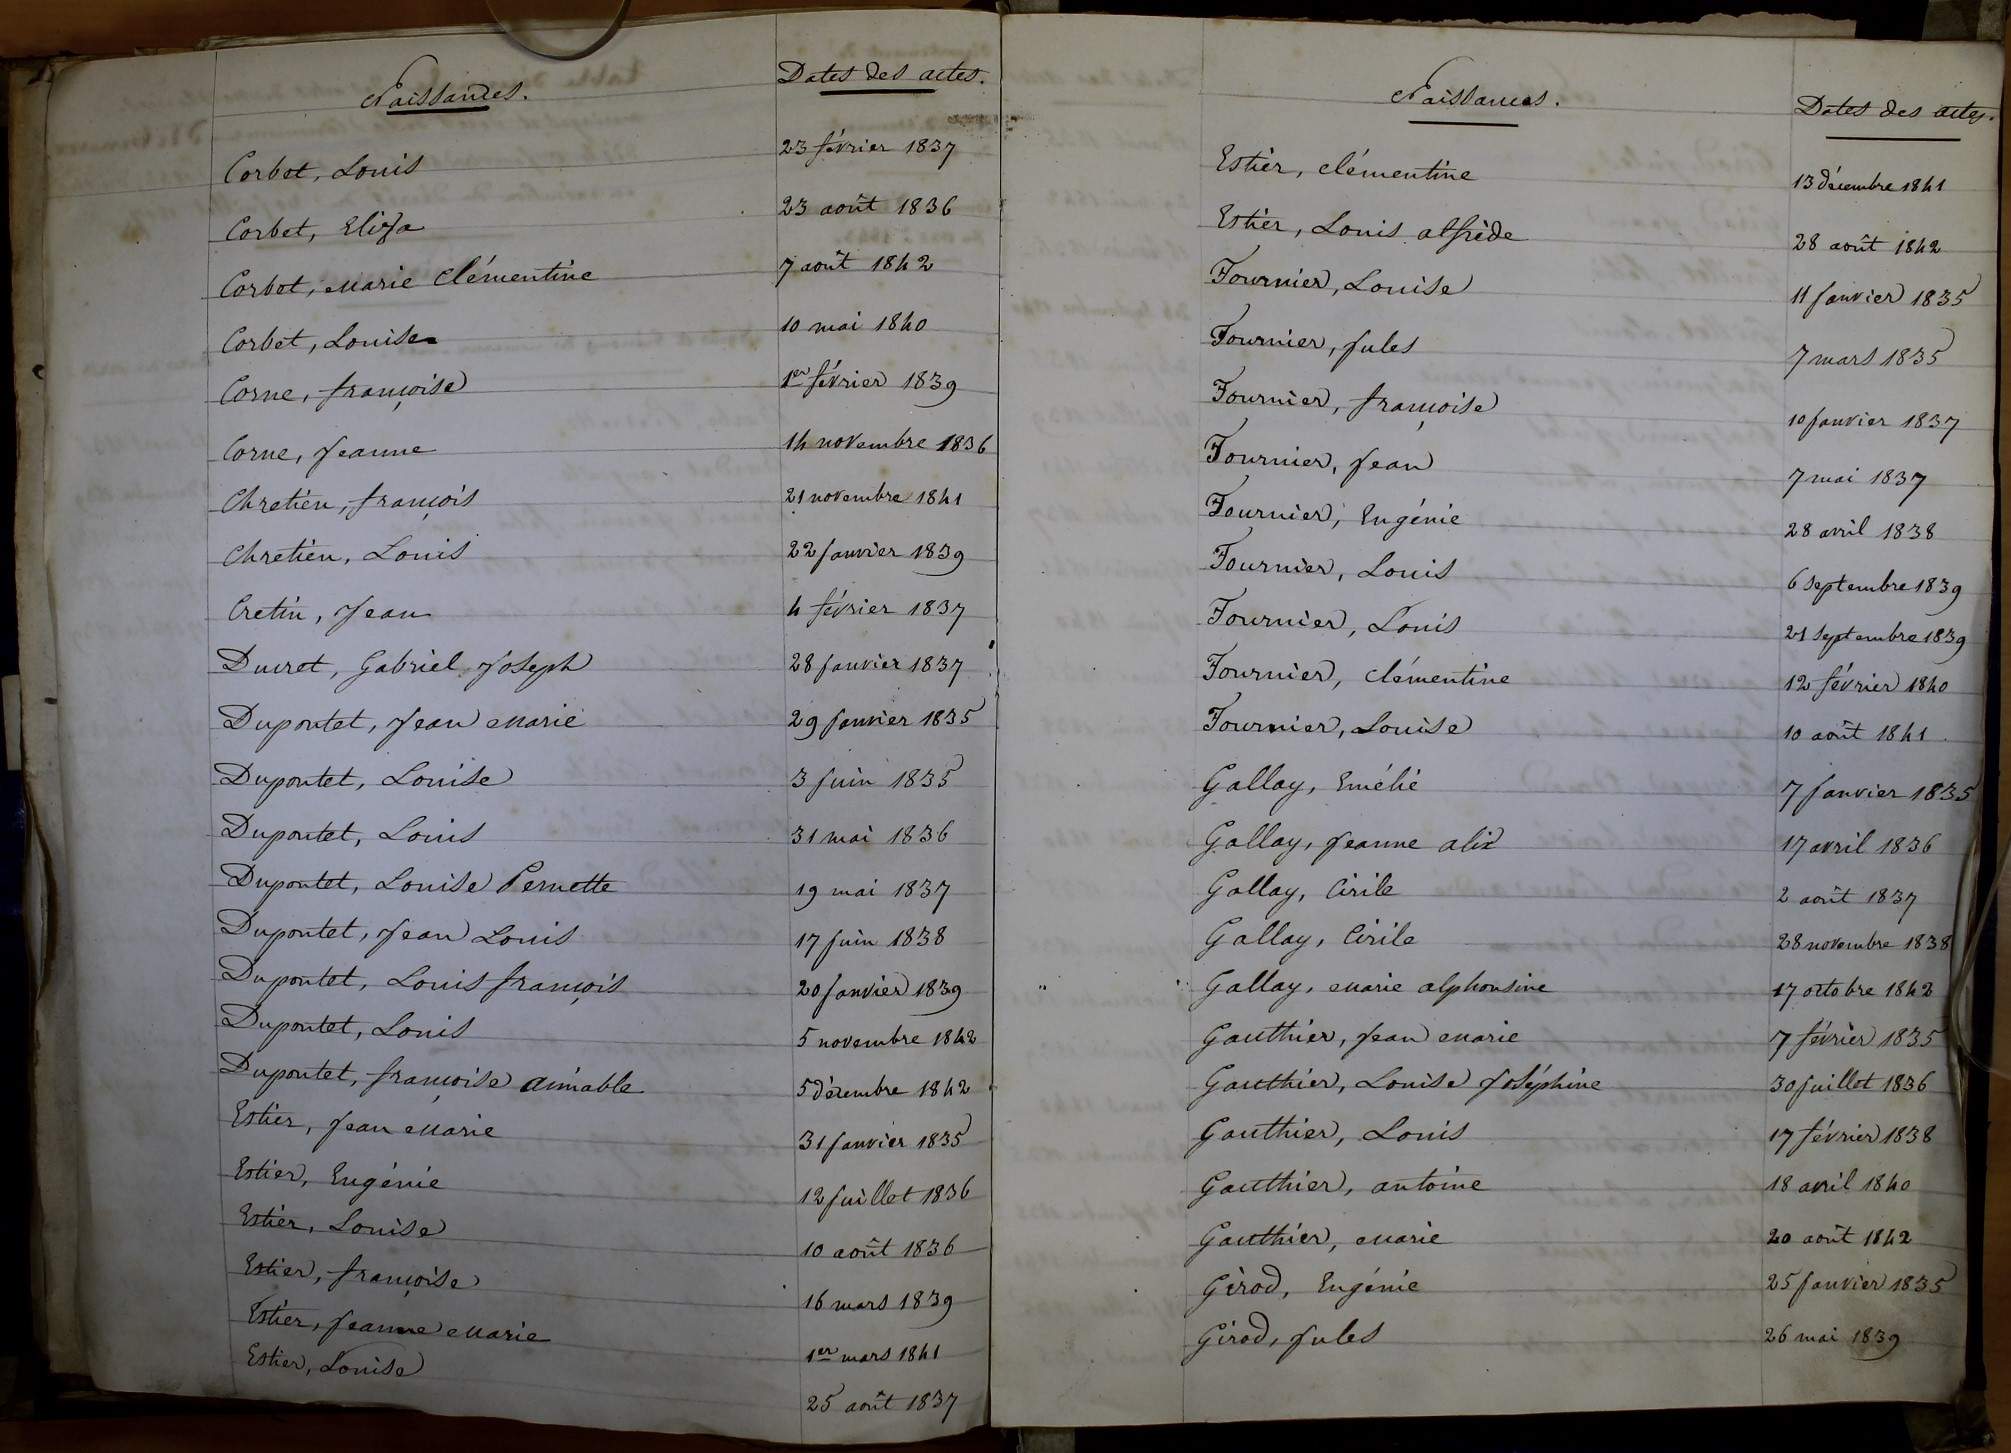 Naissances. Dates des actes.
Corbet, Louis 23 février 1837
Corbet, Eliza 23 août 1836
Corbet, Marie Clémentine 7 août 1842
Corbet, Louise 10 mai 1840
Corne, françoise 1er février 1839
Corne, Jeanne 14 novembre 1836
Chretien, françois 21 novembre 1841
Chretien, Louis 22 Janvier 1839
Cretin, Jean 4 février 1837
Ducret, Gabriel Joseph 28 Janvier 1837
Dupontet, Jean Marie 29 Janvier 1835
Dupontet, Louise 3 Juin 1835
Dupontet, Louis 31 mai 1836
Dupontet, Louise Pernette 19 mai 1837
Dupontet, Jean Louis 17 Juin 1838
Dupontet, Louis françois 20 Janvier 1839
Dupontet, Louis 5 novembre 1842
Dupontet, françoise aimable 5 décembre 1842
Estier, Jean Marie 31 Janvier 1835
Estier, Eugénie 12 Juillet 1836
Estier, Louise 10 août 1836
Estier, françoise 16 mars 1839
Estier, Jeanne Marie 1er mars 1841
Estier, Louise 25 août 1837
Naissances. Dates des actes.
Estier, Clémentine 13 décembre 1841
Estier, Louis alfrède 28 août 1842
Fournier, Louise 11 Janvier 1835
Fournier, Jules 7 mars 1835
Fournier, françoise 10 Janvier 1837
Fournier, Jean 7 mai 1837
Fournier, Eugénie 28 avril 1838
Fournier, Louis 6 septembre 1839
Fournier, Louis 21 septembre 1839
Fournier, Clémentine 12 février 1840
Fournier, Louise 10 août 1841
Gallay, Emélie 7 Janvier 1835
Gallay, Jeanne alix 17 avril 1836
Gallay, Cirile 2 août 1837
Gallay, Cirile 28 novembre 1838
Gallay, Marie alphonsine 17 octobre 1842
Gauthier, Jean Marie 7 février 1835
Gauthier, Louise Joséphine 30 Juillet 1836
Gauthier, Louis 17 février 1838
Gauthier, antoine 18 avril 1840
Gauthier, Marie 20 août 1842
Girod, Eugénie 25 Janvier 1835
Girod, Jules 26 mai 1839